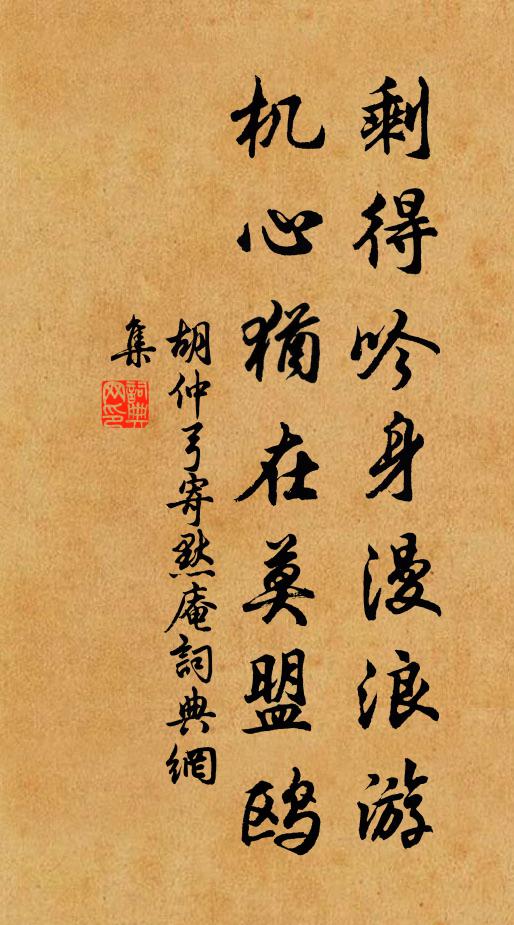 剩得吟身漫浪游
机心犹在莫盟鸥
胡仲弓寄默庵詞典網
集
詞典
网印